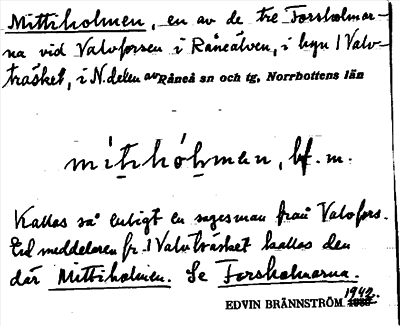 Mittiholmen, en av de tre Forsholmar-
na vid Valvforsen i Råneälven, i byn 1 Valv-
träsket, i N. delen av Råneå sn och tg, Norrbottens län
mit̬hóḷman, bf. m.
Kallas så enligt en sagesman från Valvfors.
Ed meddelaren fr. 1 Valvträsket kallas den
där Mittiholmen. Se Forsholmarna.
EDVIN BRÄNNSTRÖM 1942.